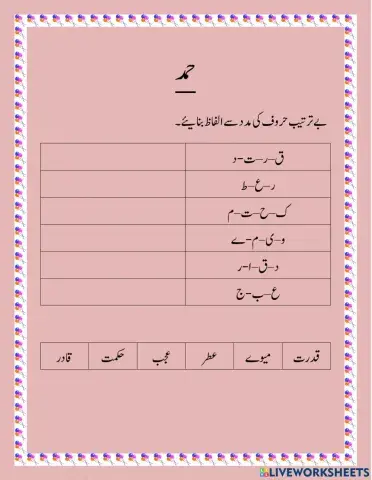 حمد
بے ترتیب حروف کی مدد سے الفاظ بنایئے۔
ق–ر–ت-د
ر–ع-ط
ک–ح–ت–م
و–ی–م-ے
د–ق–ا-ر
ع–ب-ج
قدرت میوے عطر عجب حکمت قادر
LIVEWORKSHEETS